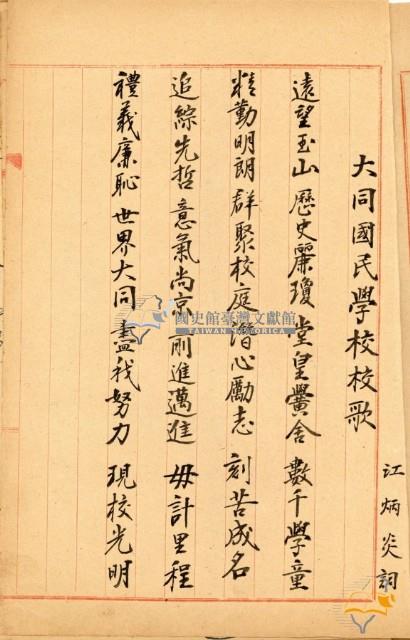 大同國民學校校歌
江炳炎詞
遠望玉山 歷史麗瓊 堂皇黌舍 數千學童
精勤明朗 群聚校庭 潛心勵志 刻苦成名
追綜先哲 意氣尚京 前進邁進 毋計里程
禮義廉恥 世界大同 盡我努力 現校光明
國史館臺灣文獻館
TAIWAN HISTORICA